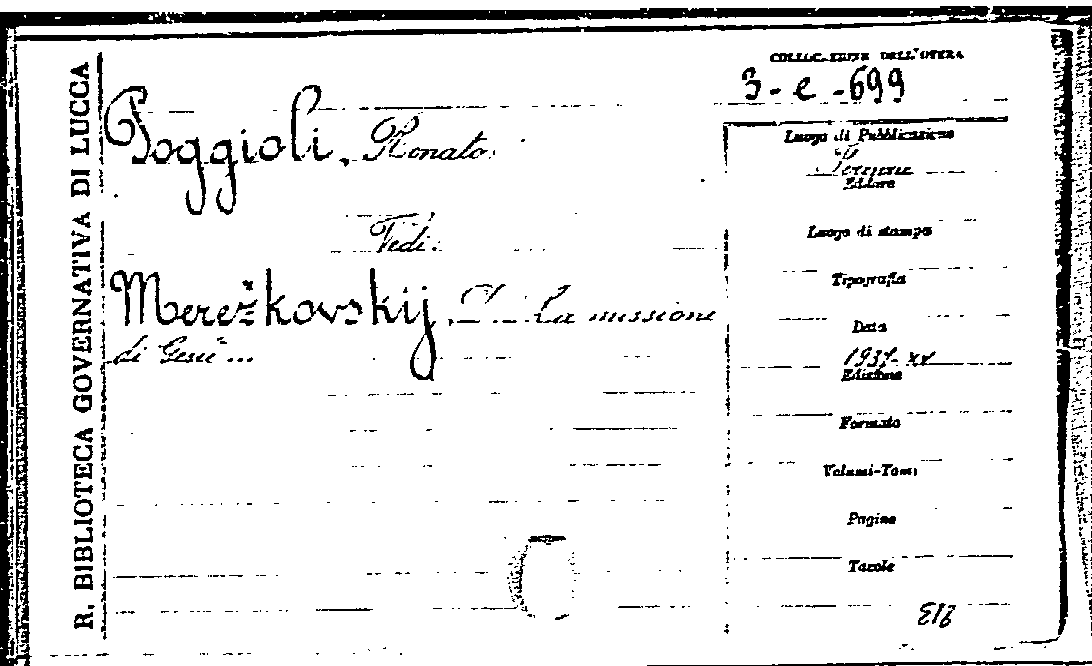 R. BIBLIOTECA GOVERNATIVA DI LUCCA
COLLOCAZIONE DELL'OPERA
3-e-699
Poggioli, Renato.
Vedi:
Merežkovskij, D. La missione
di Gesù...
Luogo di Pubblicazione
Firenze
Editore
Luogo di stampa
Tipografia
Data
Edizione
Formato
Volumi-Tomi
Pagine
Tavole